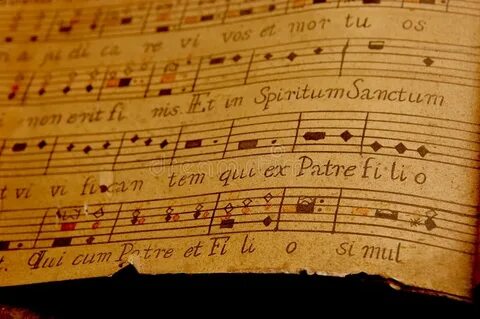 a ju di ca re vi vos et mor tu os
i non erit fi nis. Et in Spiritum Sanctum
t vi vi fi can tem qui ex Patre fi li o
t. Qui cum Patre et Fi li o si mul